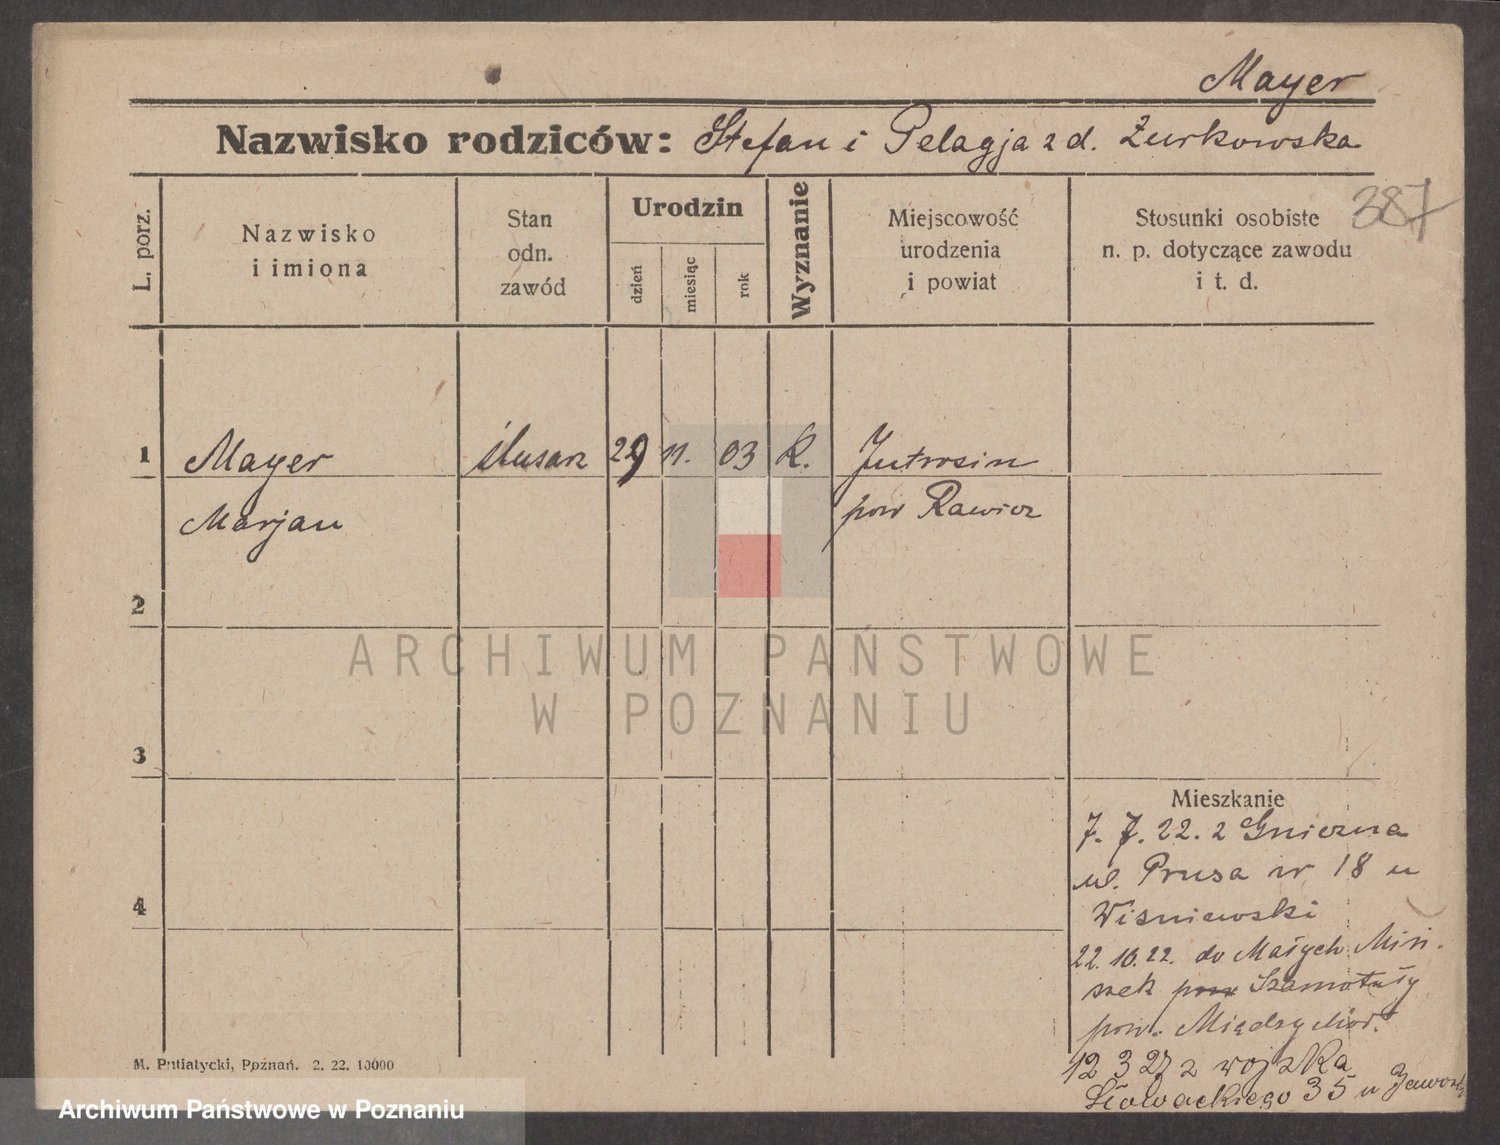 Mayer
Nazwisko rodziców: Stefan i Pelagja z d. Żurkowska
387
L. porz.
Nazwisko
i imiona
Stan
odn.
zawód
Urodzin
dzień
miesiąc
rok
Wyznanie
Miejscowość
urodzenia
i powiat
Stosunki osobiste
n. p. dotyczące zawodu
i t. d.
1
Mayer
ślusarz
29
11.
03
K.
Jutrosin
Marjan
pow Rawicz
2
ARCHIWUM PAŃSTWOWE
W POZNANIU
3
Mieszkanie
7. 7. 22. z Gniezna
ul. Prusa nr 18 u
Wisniewski
4
22. 10. 22. do Małych
szek pow Szamotuły
pow.
12 3 27 z wojska
Słowackiego 35 u
M. Putiatycki, Poznań. 2. 22. 10000
Archiwum Państwowe w Poznaniu